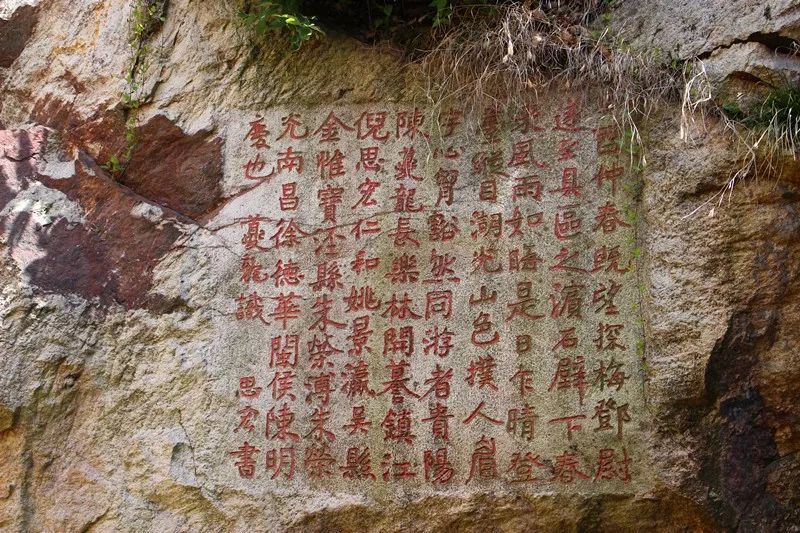 仲春既望探梅鄧尉
至具區之濵石壁下春
來風雨如晦是日乍晴登
縱目湖光山色撲人眉
宇心胷豁然同游者貴陽
陳夔龍長樂林開謩鎮江
倪思宏仁和姚景瀛吴縣
金惟寶涇縣朱榮溥朱榮
光南昌徐德華閩侯陳明
慶也 夔龍識 思宏書